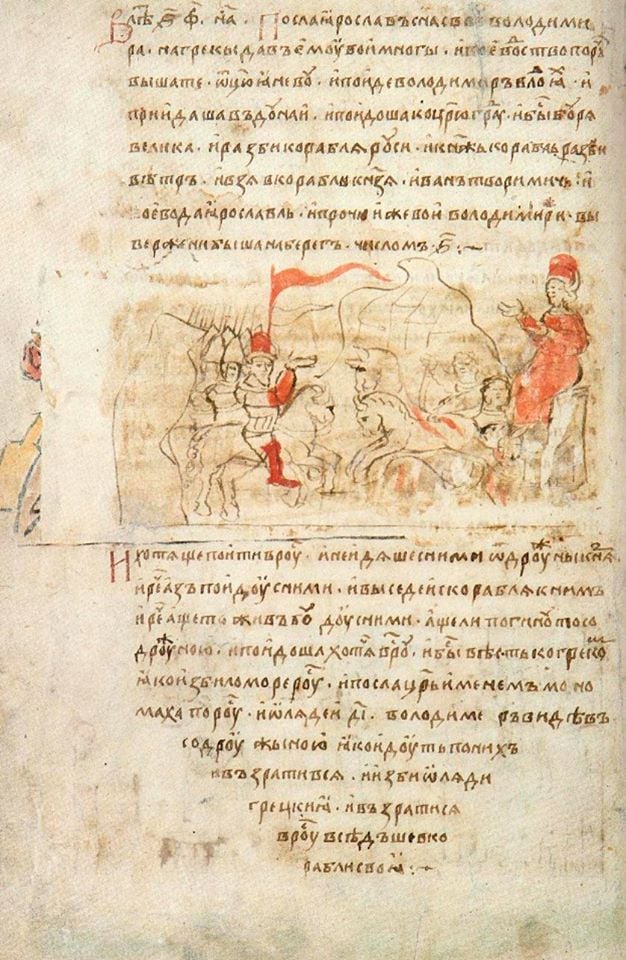 В лѣ ҂ѕ҃ ф҃ н҃а · Посла ꙗрославъ сн҃а свое володими
ра · на грекы давъ ѥмоу вои многы · и воеводство пору
вышате · ѿцю ꙗневу · и поиде володимиръ в лоⷣꙗ · и
приидаша въ дунаи · и поидоша ко цр҃югра · и бы буря
велика · и разби корабля руси · и кнѧжь корабль разби
вѣтръ · и взѧ в корабль кнѧзѧ · иванъ творимичь · и
воевода ꙗрославль · и прочии же вои володимири · вы
вержени быша на брегъ · числомъ · ҂ѕ҃ :~
И хотѧще поити в роу · и не идѧше с ними ѿ дроужины кнѧ
и реⷱ азъ поидоу с ними · и выседе ис корабля к нимъ
и реⷱ аще живъ буⷣ доу с ними · аще ли погину то со
дроужиною · и поидоша хотѧ в роу · и бы вѣсть ко греко
ꙗко изби море роу · и посла цр҃ь именемъ моно
маха по роу · и ѿлѧдеи д҃і · володиме ръ видѣвъ
со дроу жыною ꙗко идоуть по нихъ
и възративсѧ · и изби ѿлѧди
грецкиꙗ · и възратисѧ
в роу всѣдъше в ко
рабли своꙗ :~